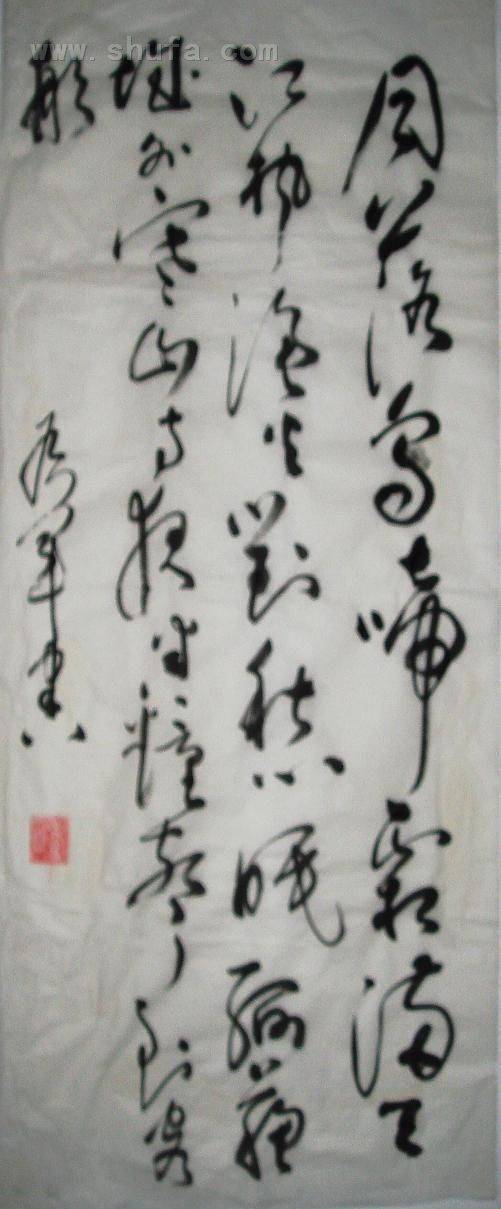 www.shufa.com
月落烏啼霜滿天
江楓漁火對愁眠姑蘇
城外寒山寺夜半鐘聲到客
船
書